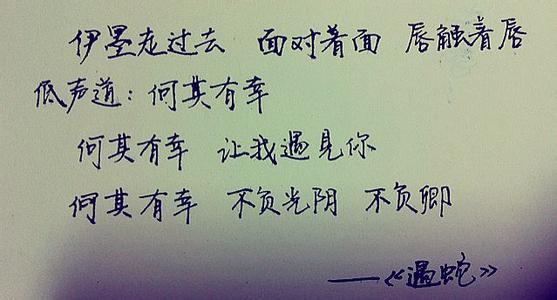 伊墨走过去 面对着面 唇触着唇
低声道：何其有幸
何其有幸 让我遇见你
何其有幸 不负光阴 不负卿
——《遇蛇》